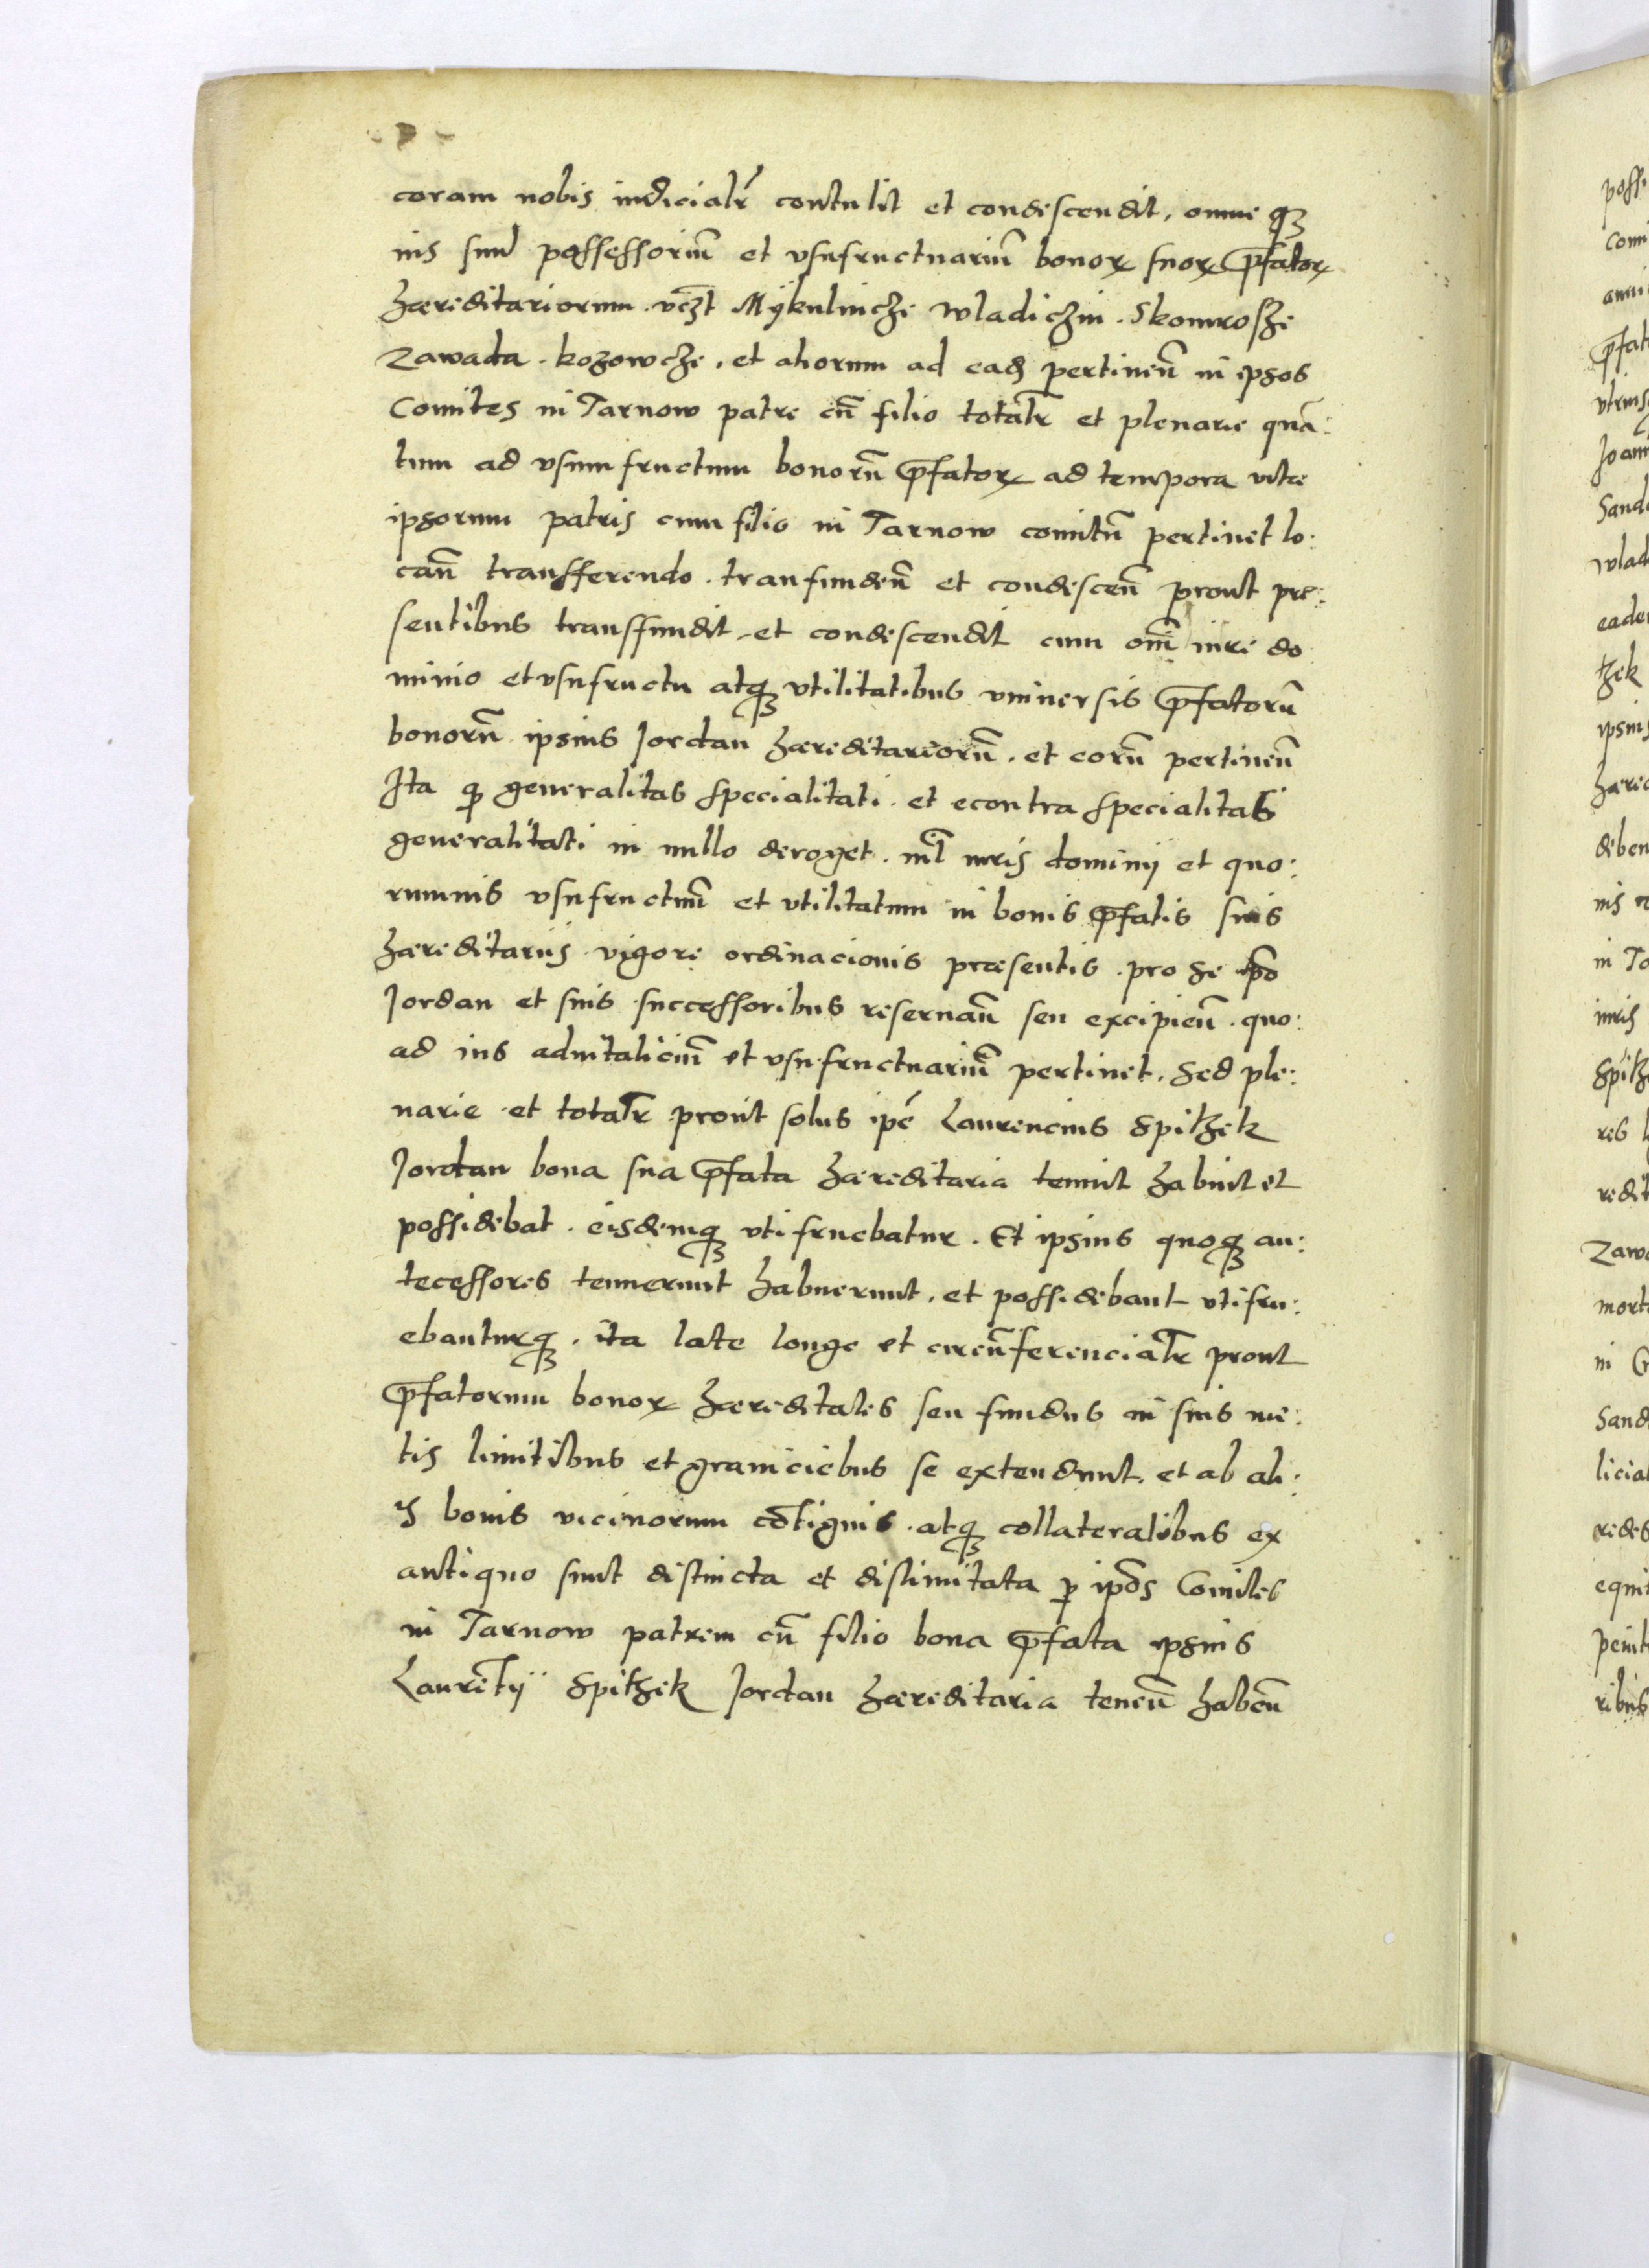 coram nobis iudicialr̃ contulit et condescendit, omne qȝ
ius suũ possessoriũ et vsufructuariũ bonoꝝ suoꝝ p̃fatoꝝ
hæreditariorum. vcꝫt Mÿkulincze wladiczin. Skomrosze
Zawada. kozowcze. et aliorum ad eadē pertineñ in ipsos
Comites in Tarnow patre cũ filio totalr̃ et plenarie quã:
tum ad vsumfructum bonorũ p̃fatoꝝ ad tempora vitæ
ipsorum patris cum filio in Tarnow comitũ pertinet lo:
cañ transferendo. transfundeñ et condesceñ prout præ:
sentibus transfundit et condescendit cum om̃i iure do
minio et vsufructu atqȝ vtilitatibus vniuersis p̃fatorũ
bonorũ ipsius Jordan hæreditariorũ. et eorũ pertineñ
Ita ꝙ generalitas specialitati. et econtra specialitas
generalitati in nullo deroget. nil̃ iuris dominij et quo:
rumuis vsufructuũ et vtilitatum in bonis p̃fatis suis
hæreditarijs vigore ordinacionis præsentis. pro se ip̃o
Jordan et suis successoribus reseruañ seu excipieñ. quo:
ad ius aduitaliciũ et vsufructuariũ pertinet. Sed ple:
narie et totalr̃ prout solus ip̃e Laurencius Spitzek
Jordan bona sua p̃fata hæreditaria tenuit habuit et
possidebat. eisdemqȝ vtifruebatur. Et ipsius quoqȝ an:
tecessores tenuerunt habuerunt. et possidebant vtifru:
ebanturqȝ. ita late longe et circũferencialr̃ prout
p̃fatorum bonoꝝ hæreditates seu fundus in suis me:
tis limitibus et graniciebus se extendunt. et ab ali:
ĳs bonis vicinorum cõtiguis. atqȝ collateralibus ex
antiquo sunt distincta et dislimitata ꝑ ip̃os Comites
in Tarnow patrem cũ filio bona p̃fata ipsius
Laurẽtij Spitzek Jordan hæreditaria teneñ habeñ